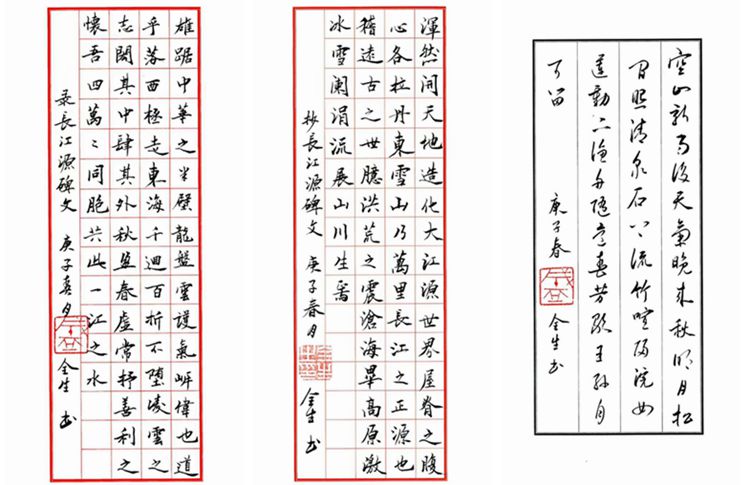 雄踞中華之半壁龍盤雲護氣偉也道
乎落西極走東海千迴百折不墮凌雲之
志閎其中肆其外秋盈春虛常抒善利之
懷吾四萬〻同胞共此一江之水
录長江源碑文 庚子春月 金生 书
渾然開天地造化大江源世界屋脊之腹
心各拉丹東雪山乃萬里長江之正源也
稽遠古之世臆洪荒之震滄海畢高原激
冰雪闌涓流展山川生焉
抄長江源碑文 庚子春月 金生 书
空山新雨後天氣晚來秋明月松
間照清泉石上流竹喧歸浣女
蓮動下漁舟隨意春芳歇王孫自
可留 庚子春 金生书